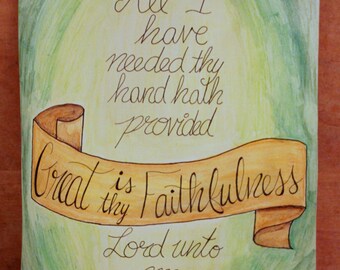 All I
have
needed thy
hand hath
provided
Great is thy Faithfulness
Lord unto
me